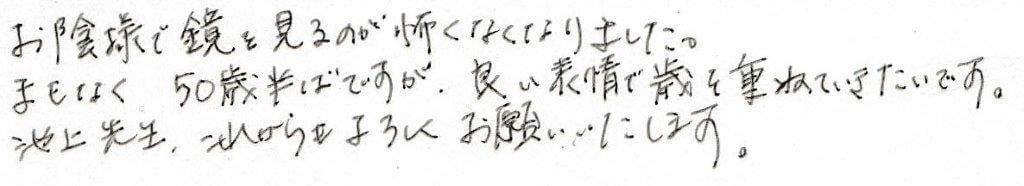 お陰様で鏡を見るのが怖くなくなりました。
まもなく 50歳半ばですが、良い表情で歳を重ねていきたいです。
池上先生、これからもよろしくお願いいたします。